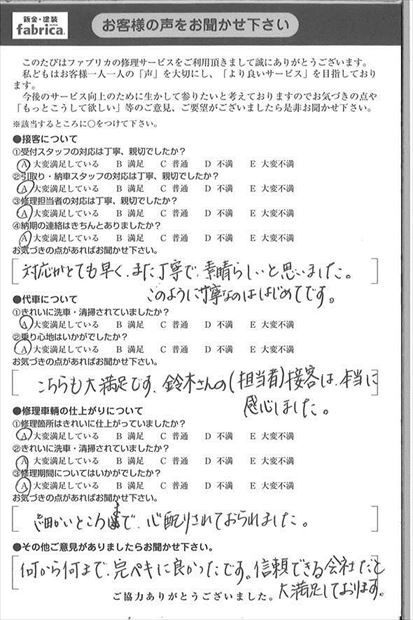 鈑金・塗装
fabrica.
お客様の声をお聞かせ下さい
このたびはファブリカの修理サービスをご利用頂きまして誠にありがとうございます。
私どもはお客様一人一人の「声」を大切にし、「より良いサービス」を目指しております。
今後のサービス向上のために生かして参りたいと考えておりますのでお気づきの点や
「もっとこうして欲しい」等のご意見、ご要望がございましたら是非お聞かせ下さい。
※該当するところに○をつけて下さい。
●接客について
①受付スタッフの対応は丁寧、親切でしたか?
A 大変満足している B 満足 C 普通 D 不満 E 大変不満
②引取り・納車スタッフの対応は丁寧、親切でしたか?
A 大変満足している B 満足 C 普通 D 不満 E 大変不満
③修理担当者の対応は丁寧、親切でしたか?
A 大変満足している B 満足 C 普通 D 不満 E 大変不満
④納期の連絡はきちんとありましたか?
A 大変満足している B 満足 C 普通 D 不満 E 大変不満
お気づきの点があればお聞かせ下さい。
対応がとても早く、また丁寧で、素晴らしいと思いました。
このように丁寧なのははじめてです。
●代車について
①きれいに洗車・清掃されていましたか?
A 大変満足している B 満足 C 普通 D 不満 E 大変不満
②乗り心地はいかがでしたか?
A 大変満足している B 満足 C 普通 D 不満 E 大変不満
お気づきの点があればお聞かせ下さい。
こちらも大満足です。鈴木さんの(担当者)接客は、本当に
感心しました。
●修理車輌の仕上がりについて
①修理箇所はきれいに仕上がっていましたか?
A 大変満足している B 満足 C 普通 D 不満 E 大変不満
②きれいに洗車・清掃されていましたか?
A 大変満足している B 満足 C 普通 D 不満 E 大変不満
③修理期間についてはいかがでしたか?
A 大変満足している B 満足 C 普通 D 不満 E 大変不満
お気づきの点があればお聞かせ下さい。
細かいところまで、心配りされておられました。
●その他ご意見がありましたらお聞かせ下さい。
何から何まで、完ペキに良かったです。信頼できる会社だと
大満足しております。
ご協力ありがとうございました。